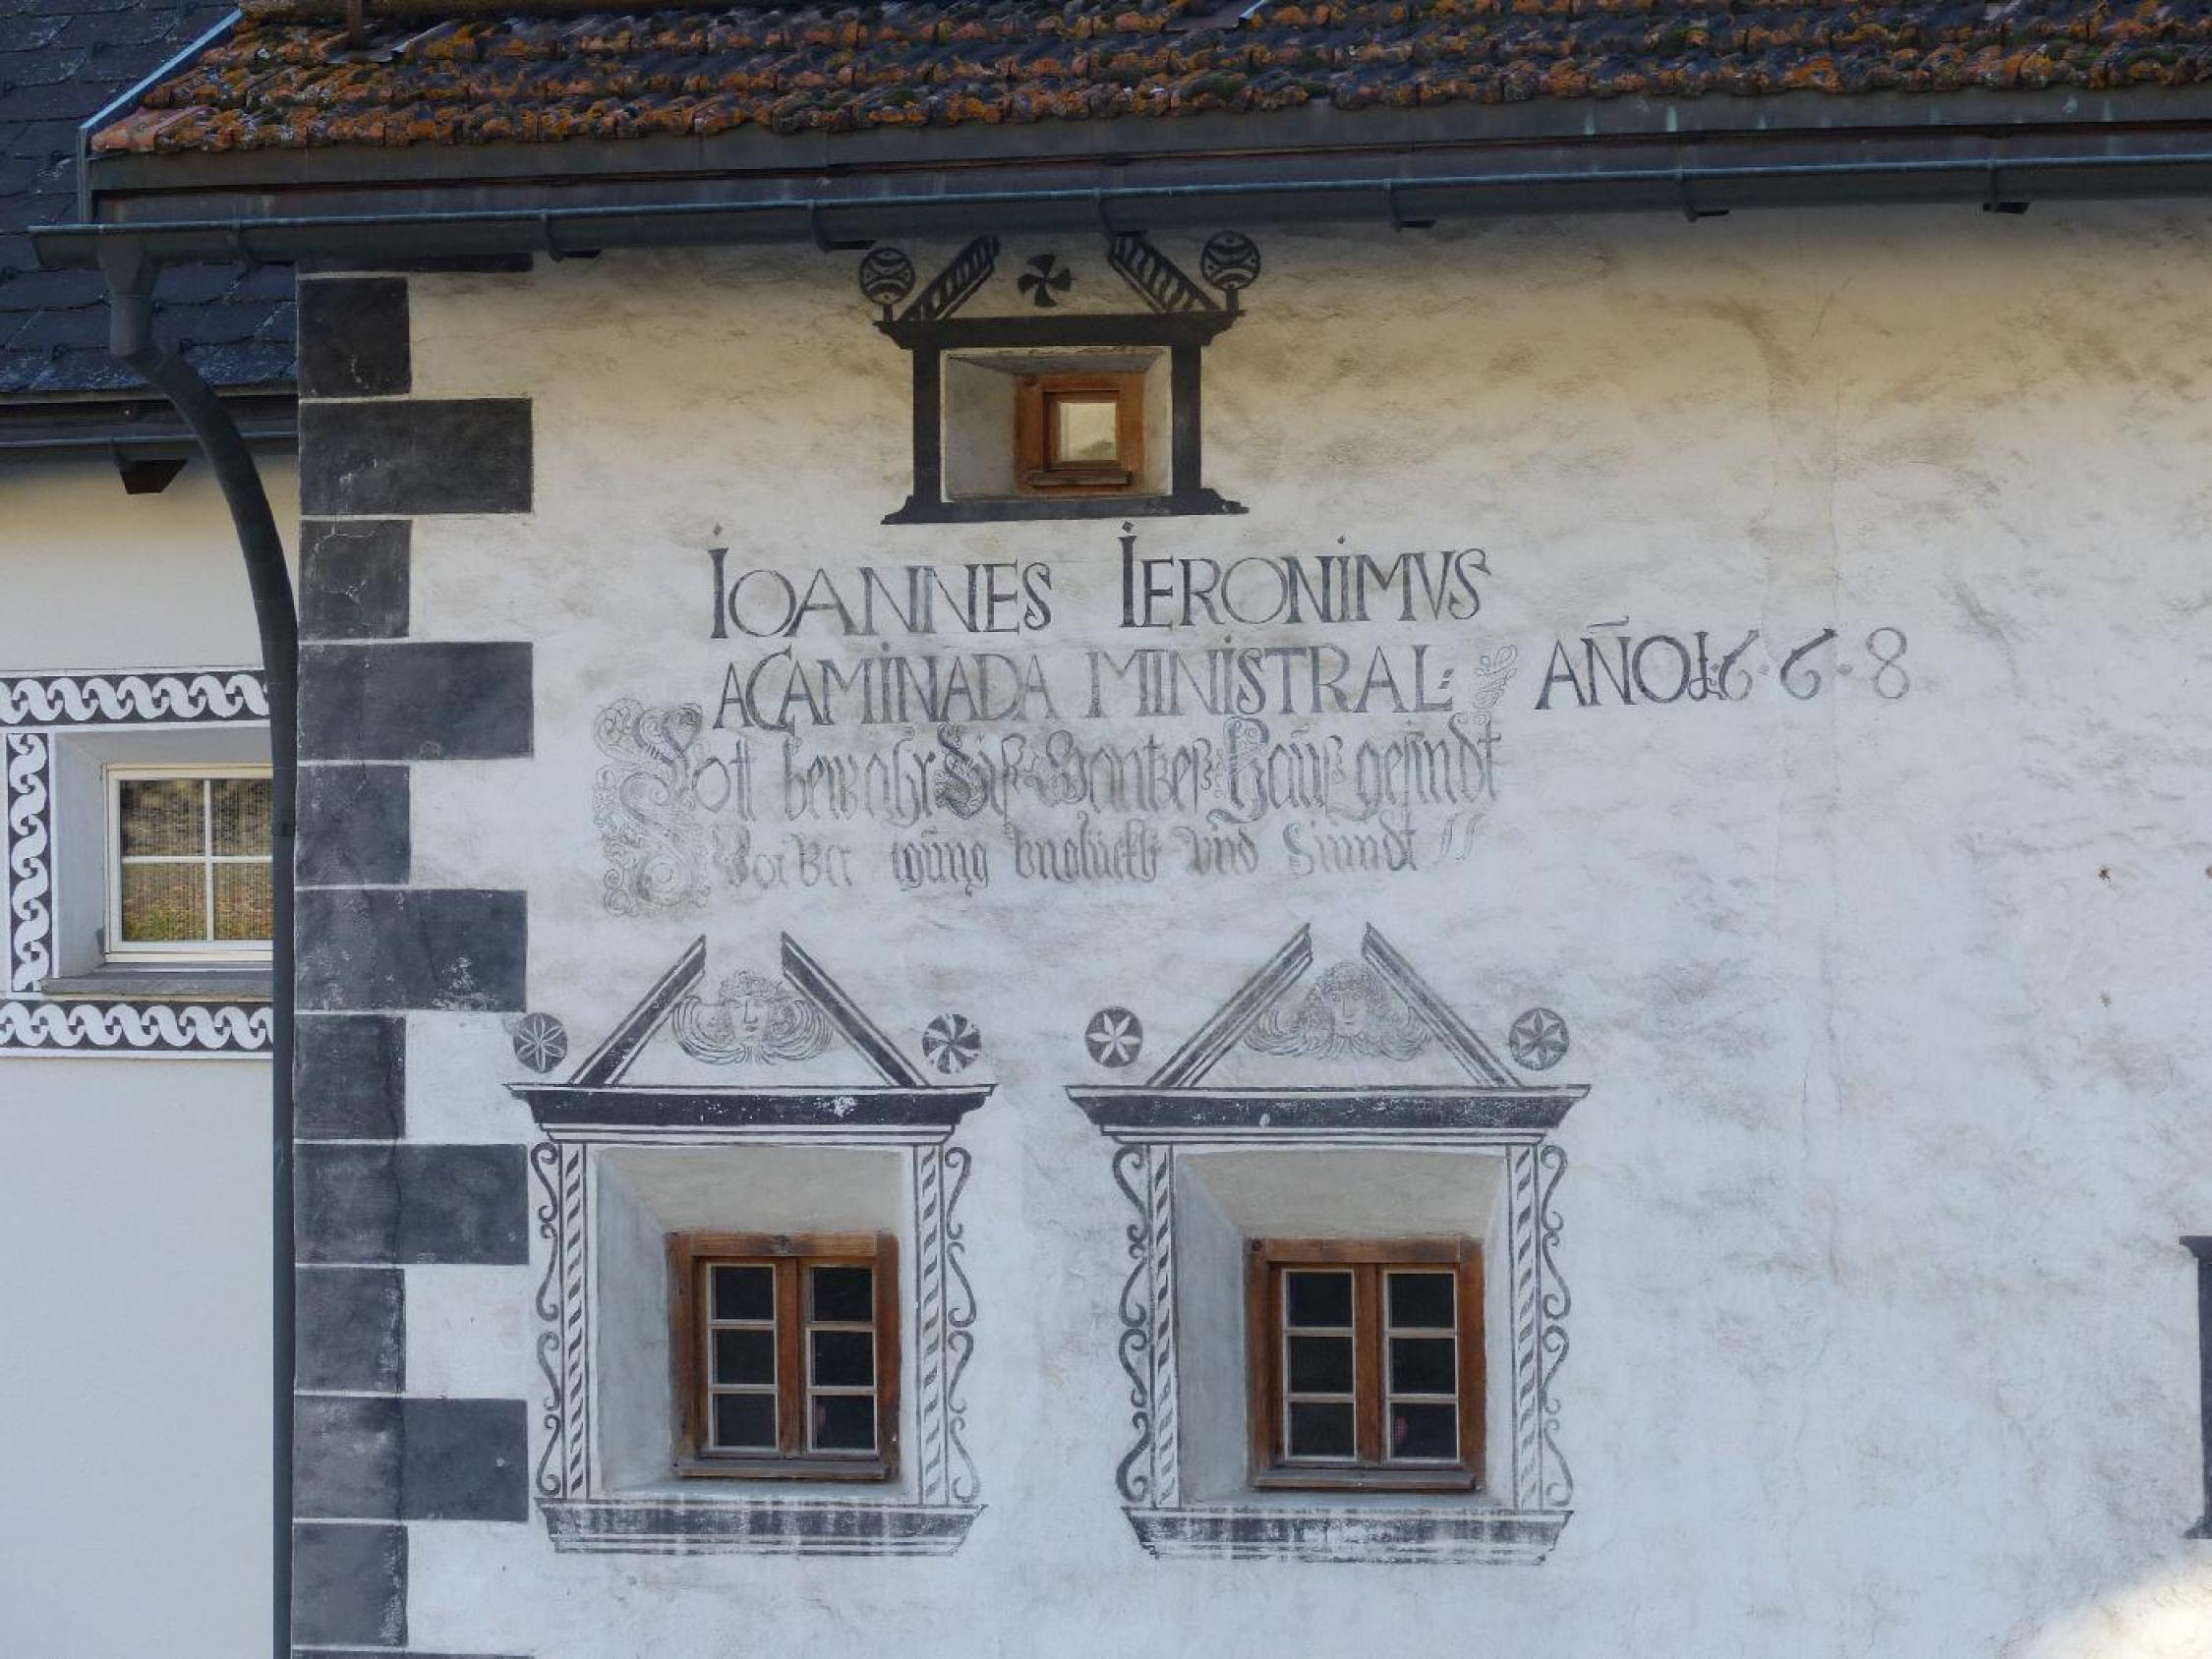 IOANNES IERONIMVS
ACAMINADA MINISTRAL: AÑO 1.6.6.8
Gott bewahr Diß Gantzeß Hauß gesindt
Vor Ver vnglückh vnd Sünndt